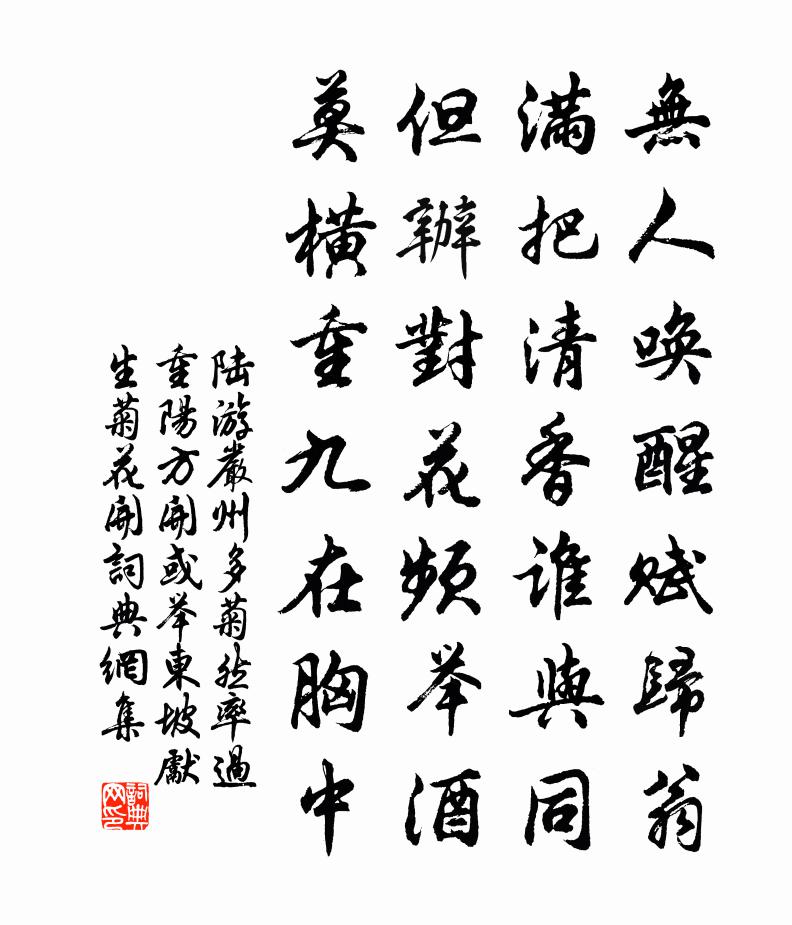 無人喚醒賦歸翁
滿把清香誰與同
但辦對花頻举酒
莫橫重九在胸中
陆游嚴州多菊然率過
重陽方開或举東坡獻
生菊花開詞典網集
詞典网印